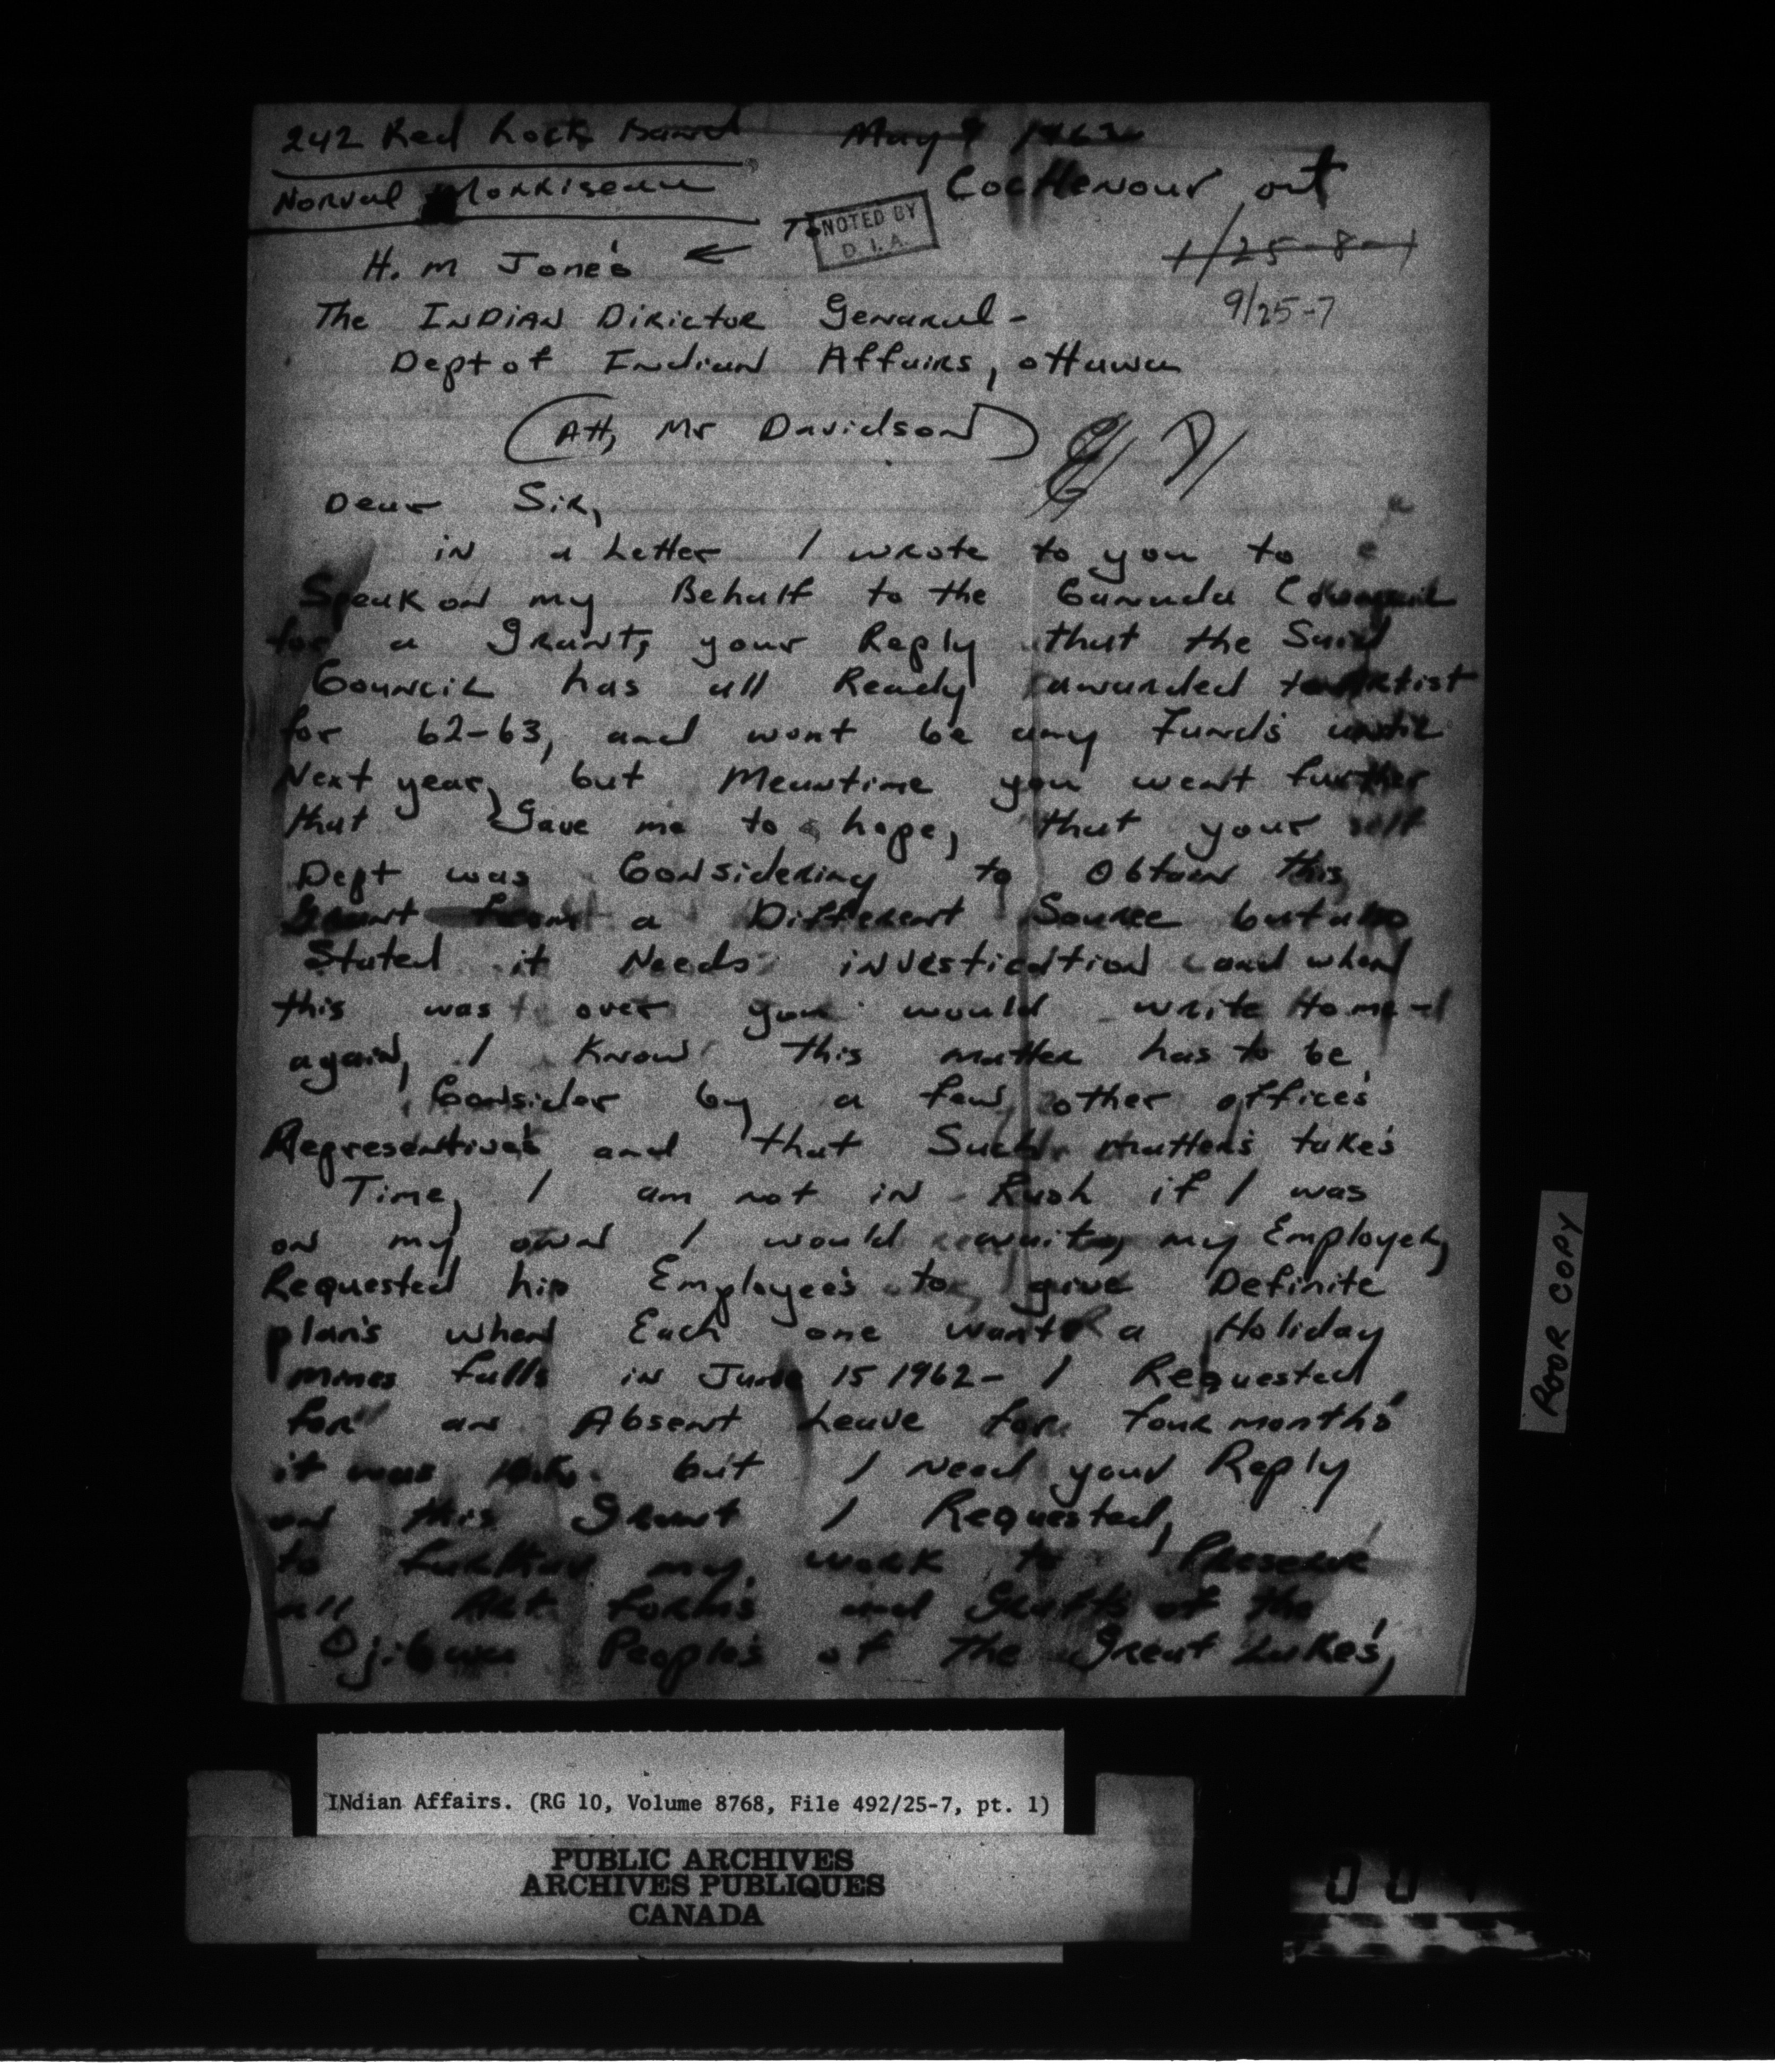 242 Red Rock Band May 9 1962
Norval Morriseau Cochenour ont
To NOTED BY
D. I. A.
H. M Jone's ← 1/25-8-1
The INDIAN Dirictor Genaral - 9/25-7
Dept of Indian Affairs, ottawa
(Att, Mr Davidson)
Dear Sir,
in a Letter I wrote to you to
Speak on my Behalf to the Canada Council
for a Grant, your Reply that the Said
Council has all Ready awarded to Artist
for 62-63, and wont be any Fund's until
Next year, but Meantime you went further
that Gave me to hope, that your self
Dept was Considering to Obtain this
Grant from a Different Source but also
Stated it Needs investication and when
this was over you would write to me
again, I Know this matter has to be
Consider by a few other office's
Representive's and that Such matter's take's
Time, I am not in Rush if I was
on my own I would wait, my Employer,
Requested his Employee's to give Definite
plan's when Each one want a Holiday
mines falls in June 15 1962- I Requested
for an Absent Leave for four month's
it was but I need your Reply
on this Grant I Requested,
to further my work to Preserve
all Art form's and of the
Ojibwa People's of the Great Lake's,
POOR COPY
INdian Affairs. (RG 10, Volume 8768, File 492/25-7, pt. 1)
PUBLIC ARCHIVES
ARCHIVES PUBLIQUES
CANADA